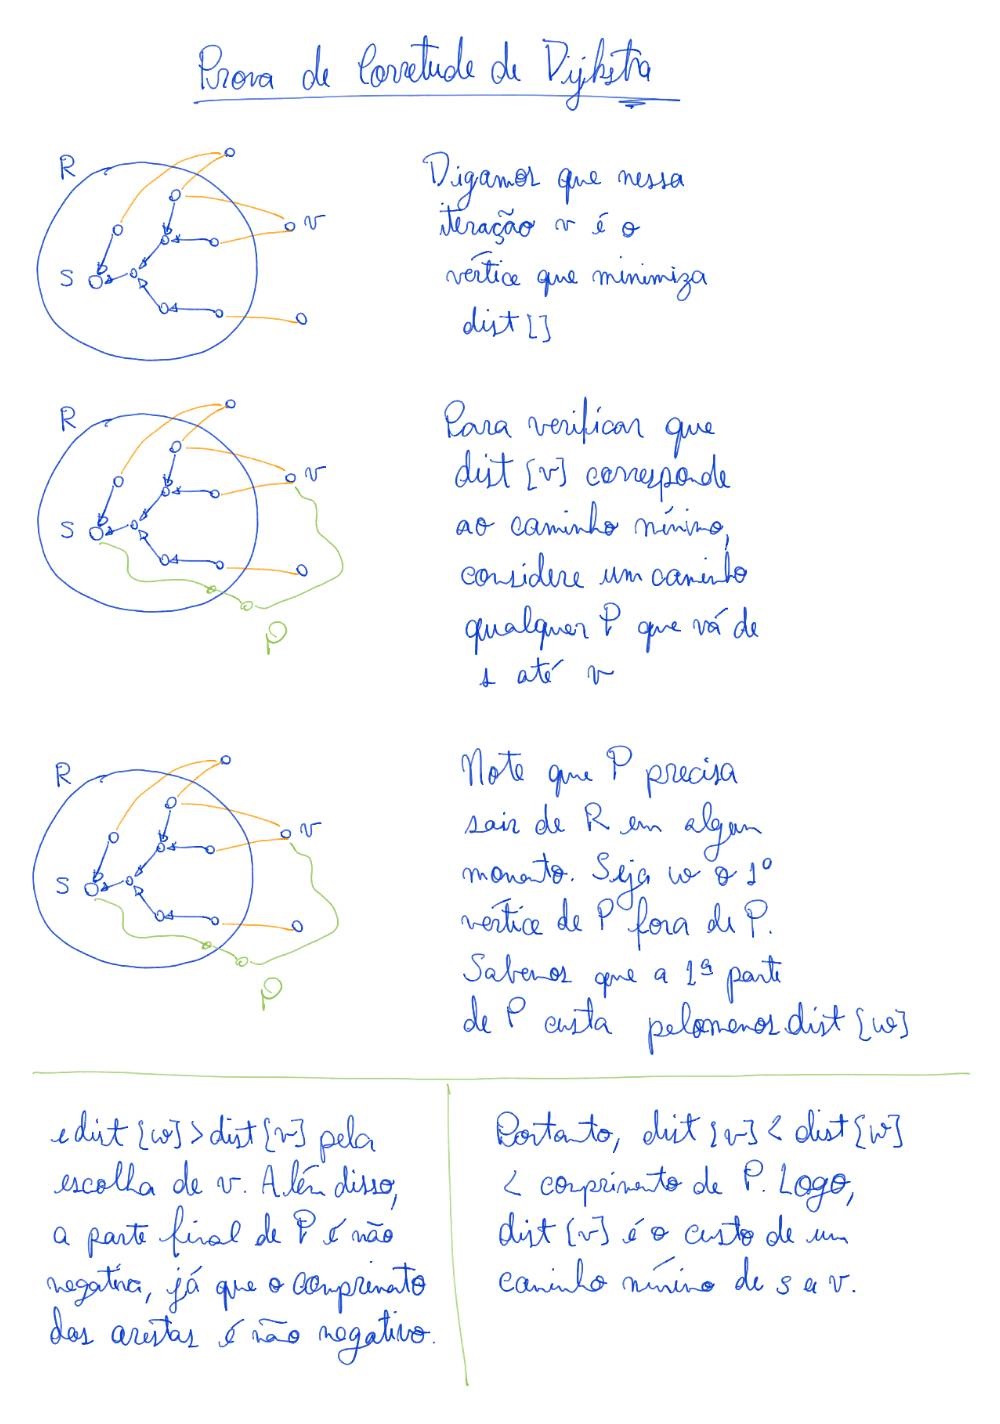 Prova de Corretude de Dijkstra
R
S
v
Digamos que nessa
iteração v é o
vértice que minimiza
dist []
R
S
v
P
Para verificar que
dist [v] corresponde
ao caminho mínimo,
considere um caminho
qualquer P que vá de
s até v
R
S
v
P
Note que P precisa
sair de R em algum
momento. Seja w o 1º
vértice de P fora de P.
Sabemos que a 1ª parte
de P custa pelomenos dist [w]
e dist [w] > dist [v] pela
escolha de v. Além disso,
a parte final de P é não
negativa, já que o comprimento
das arestas é não negativo.
Portanto, dist [v] < dist [w]
< comprimento de P. Logo,
dist [v] é o custo de um
caminho mínimo de s a v.